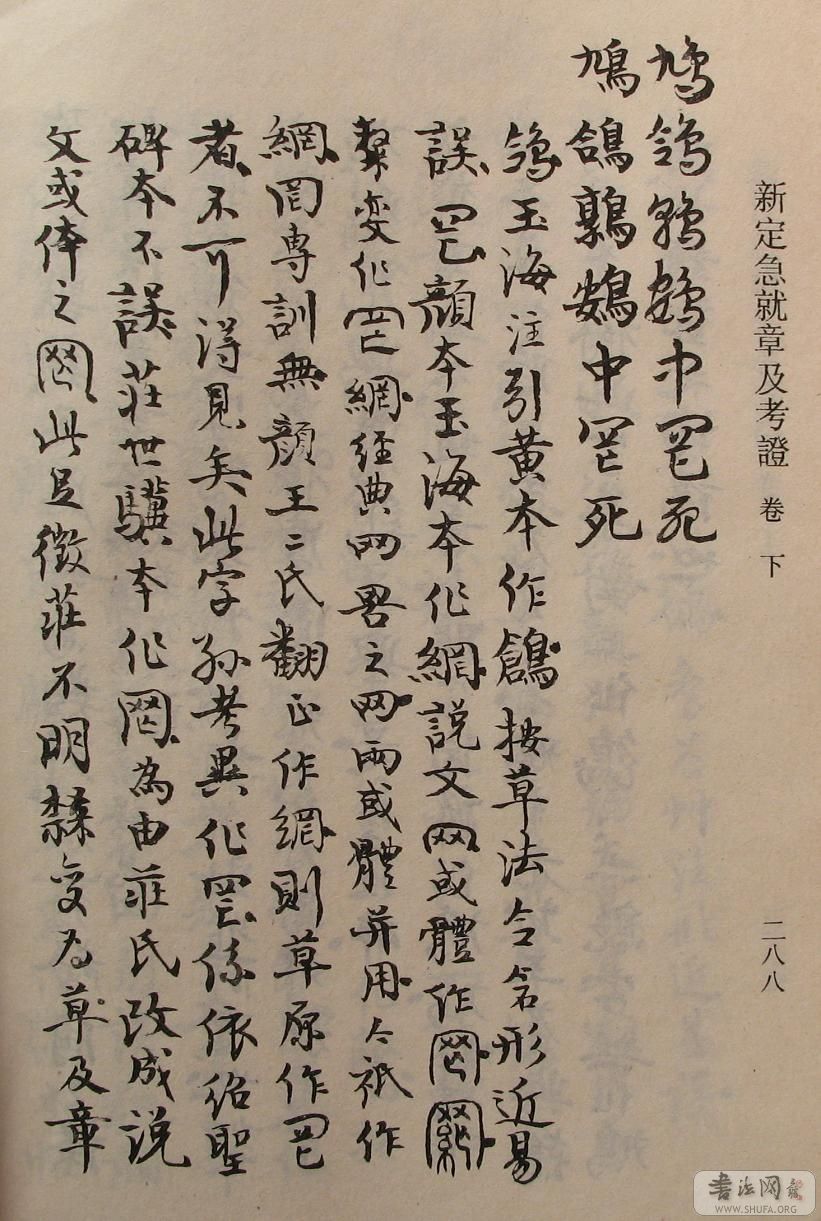 新定急就章及考證 卷下
二八八
鳩鴿鶉鷃中罔死
鳩鴿鶉鷃中罔死
鴿玉海注引黃本作鶬按草法合倉形近易
誤罔顏本玉海本作網說文网或體作𦉽𦉾
隸變作罔網經典网罟之网兩或體并用今祇作
網罔專訓無顏王二氏翻正作網則草原作罔
者不可得見矣此字孫考異作罔係依紹聖
碑本不誤莊世驥本作𦉽為由莊氏改成說
文或体之𦉽此足徵莊不明隸變為草及章
書法网
WWW.SHUFA.ORG